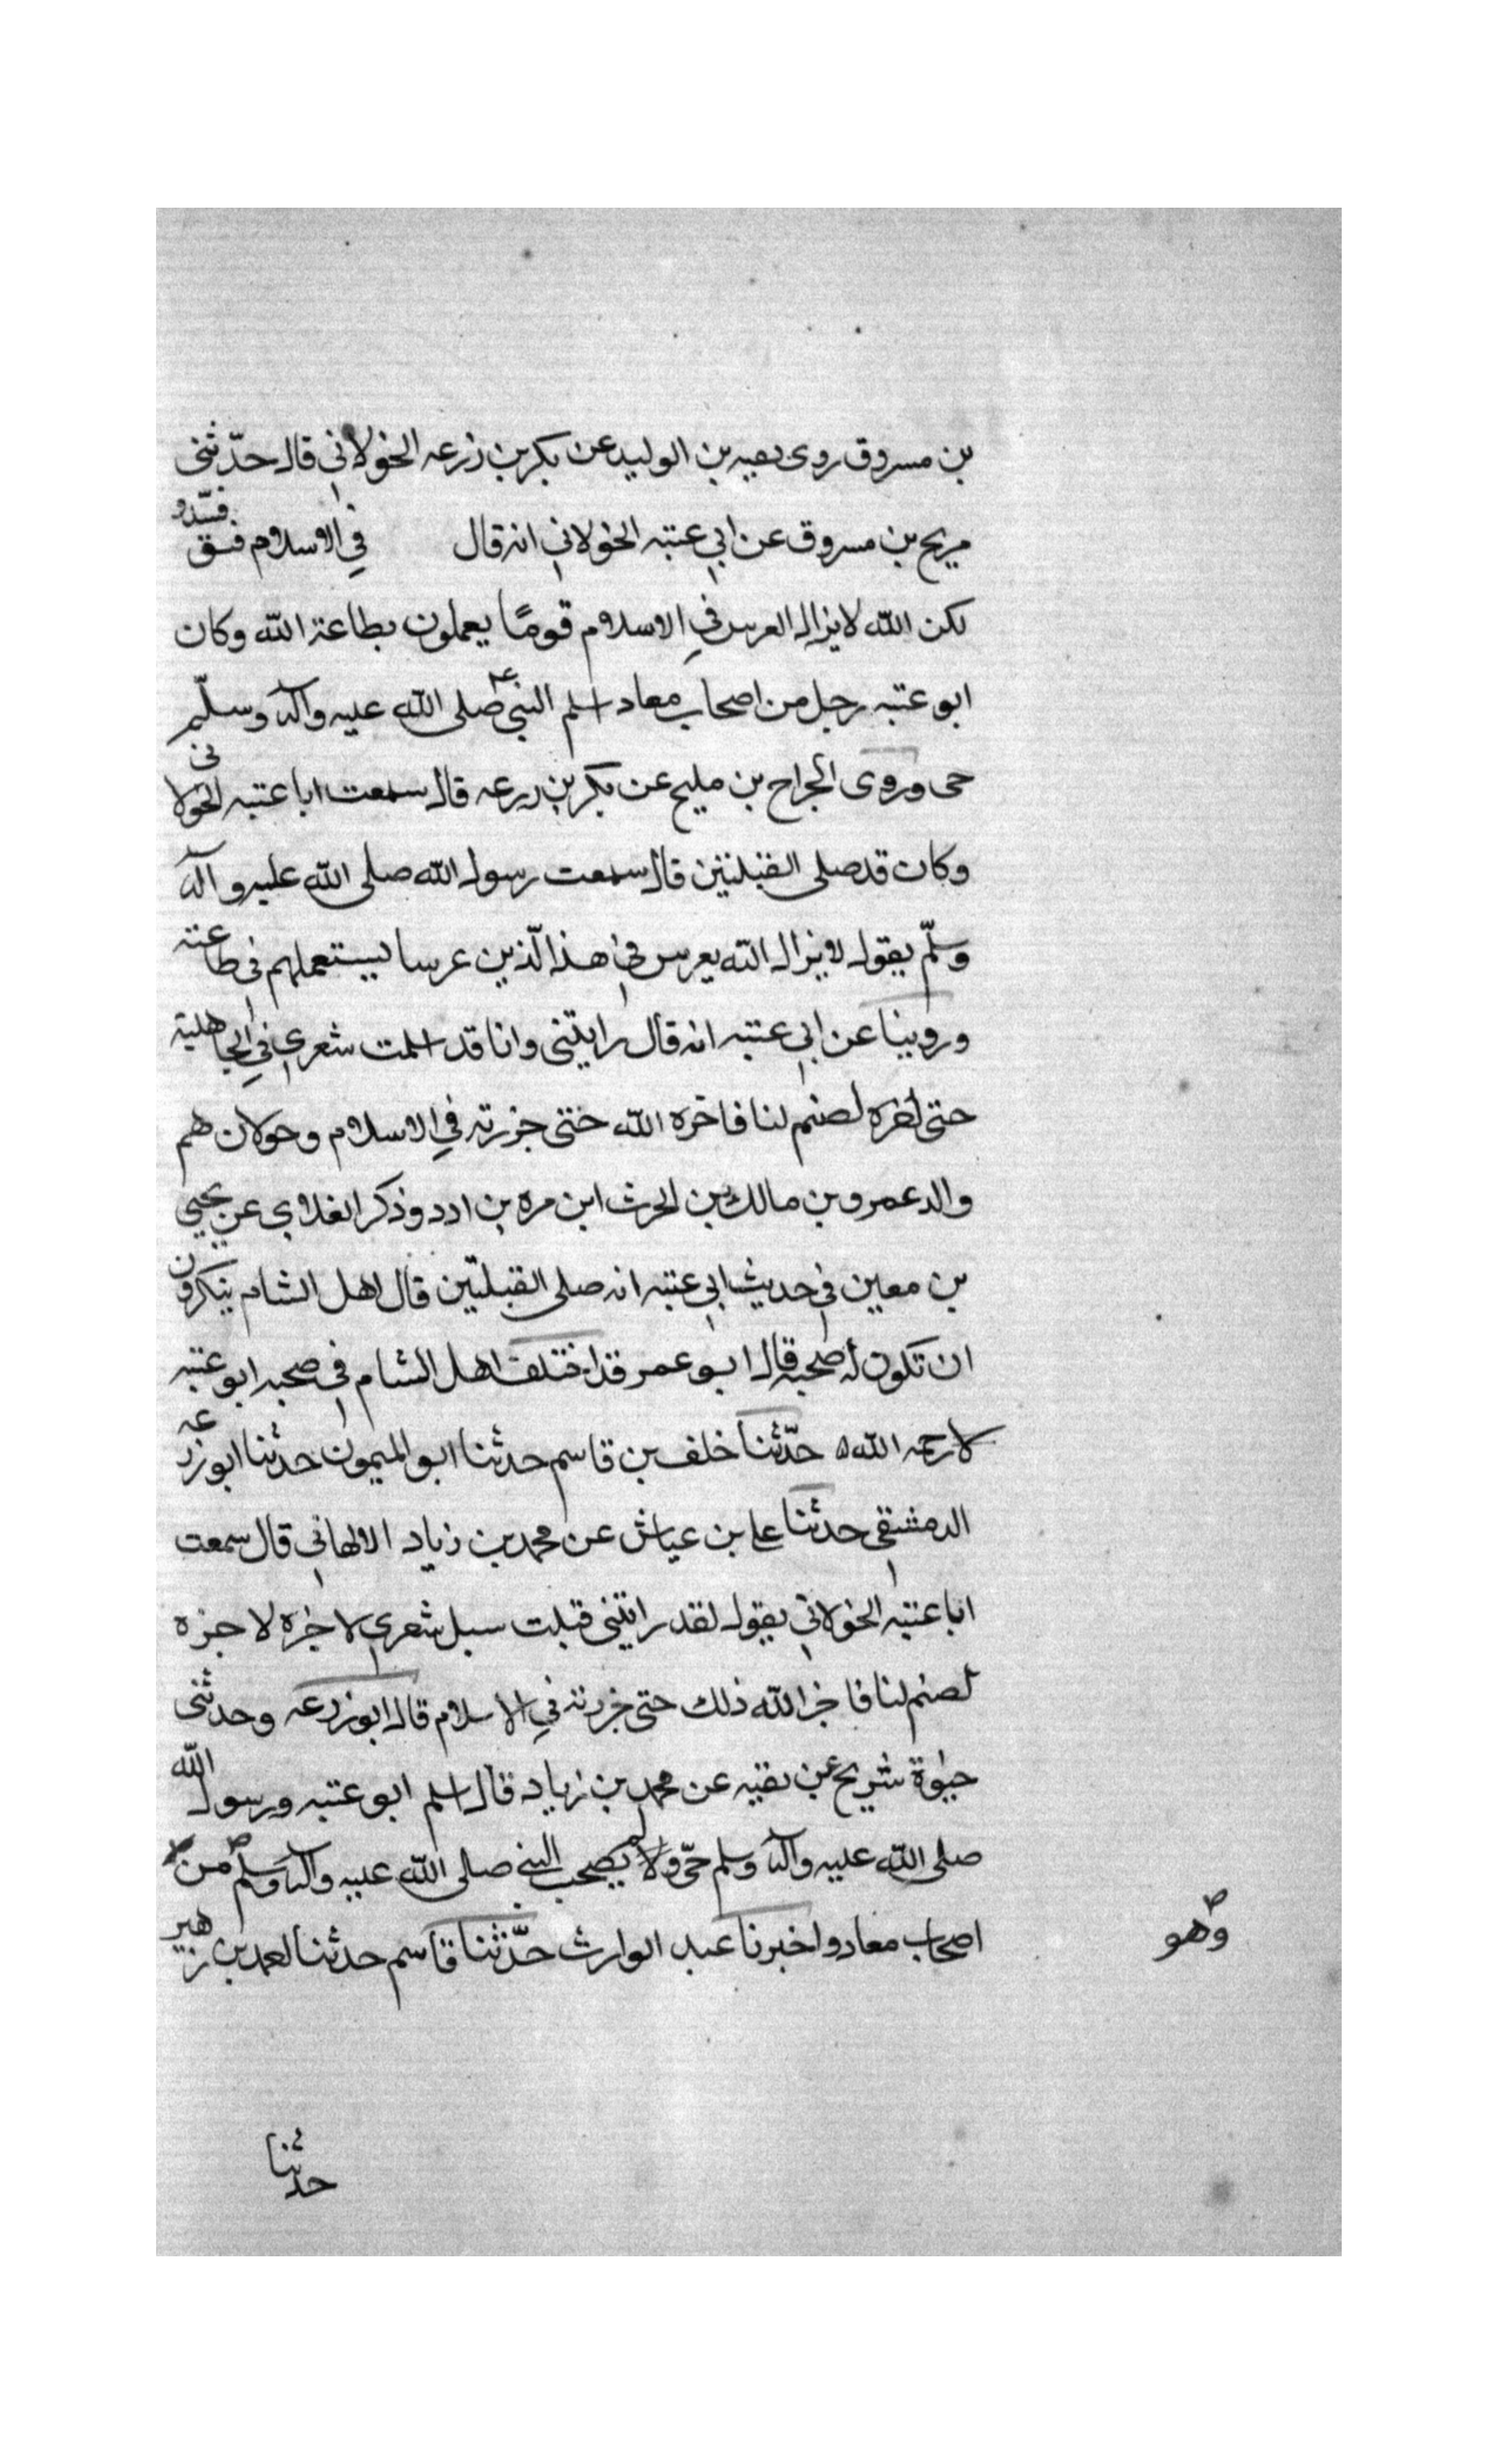 بن مسروق روى بقيه بن الوليد عن بكر بن زرعه الخولاني قال حدّثنى
مريح بن مسروق عن ابي عتبه الخولاني انه قال في الاسلام فسق
لكن الله لا يزال العرس في الاسلام قومًا يعملون بطاعة الله وكان
ابو عتبه رجل من اصحاب معاد اسلم النبي صلى الله عليه وآله وسلّم
حى وروى الجراح بن مليح عن بكر بن زرعه قال سمعت ابا عتبه الخولانى
وكان قد صلى القبلتين قال سمعت رسول الله صلى الله عليه وآله
وسلّم يقول لا يزال الله يعرس في هذا الّذين عرسا يستعملهم فى طاعته
وروينا عن ابي عتبه انه قال رايتنى وانا قد اسلمت شعري في الجاهلية
حتى لصنم لنا فاخره الله ختى جززته في الاسلام وحولان هم
والد عمرو بن مالك بن الحرث ابن مره بن ادد وذكر الغلابي عن يحيى
بن معين في حديث ابي عتبه انه صلى القبلتين قال اهل الشام ينكرون
ان تكون له صحبه قال ابو عمر قد اختلف اهل الشام في صحبه ابو عتبه
لا رحمه الله حدّثنا خلف بن قاسم حدثنا ابو الميمون حدثنا ابو زرعه
الدمشقى حدثنا على بن عياش عن محمد بن زياد الالهاني قال سمعت
ابا عتبه الخولاني يقول لقد رايتنى قبلت سبل شعري لاجزه لاجزه
لصنم لنا فاخر الله ذلك حتى جززته في الاسلام قال ابو زرعه وحدثنى
حيوة شريح عن بقيه عن محمد بن زياد قال اسلم ابو عتبه ورسول الله
صلى الله عليه وآله وسلم حىّ ولم يصحب النبي صلى الله عليه وآله وسلم من
وهو
اصحاب معاد واخبرنا عبد الوارث حدّثنا قاسم حدثنا احمد بن زهير
حدثنا